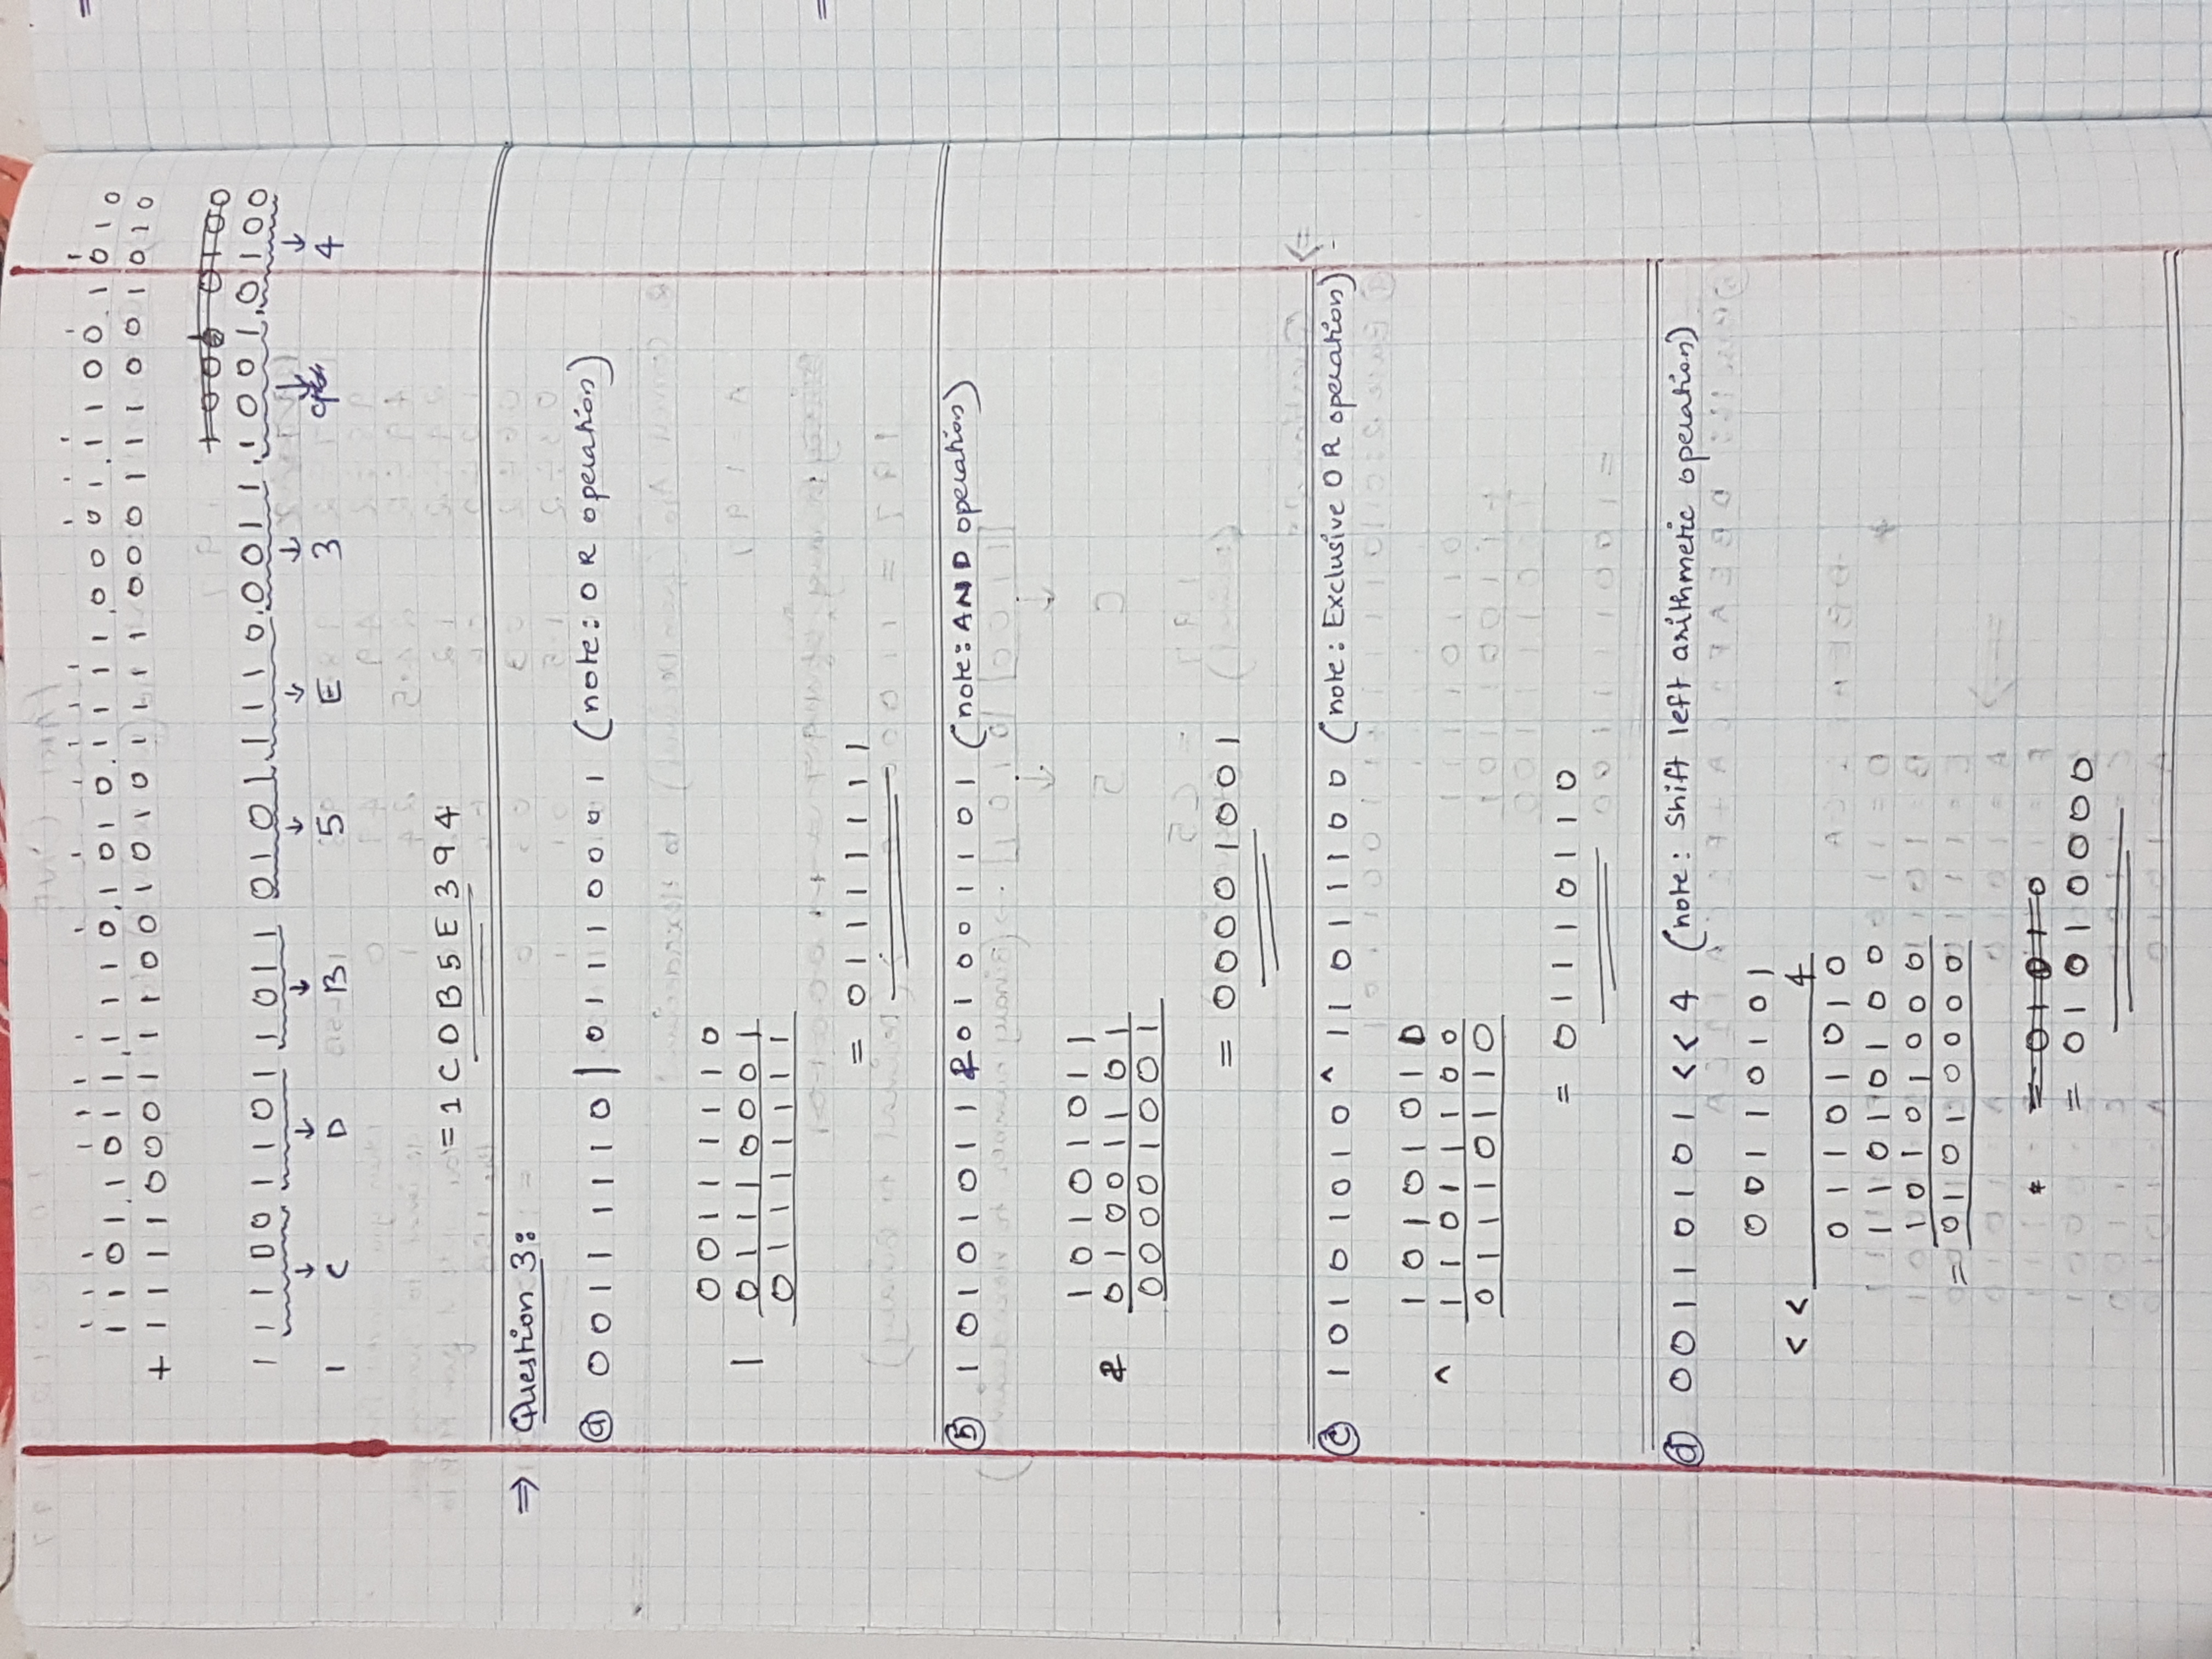 1 1 1 1 1 1 1 1 1 1 1 1 1 1 1 1 1 1
1 1 0 1 . 1 0 1 1 . 1 1 1 0 . 1 0 1 0 . 1 1 1 1 . 0 0 0 1 . 1 1 0 0 . 1 0 1 0
+ 1 1 1 1 0 0 0 1 1 1 0 0 1 0 1 0 1 1 1 1 0 0 0 1 1 1 0 0 1 0 1 0
1 1 1 0 0 1 1 0 1 1 0 1 1 0 1 0 1 1 1 1 0 . 0 0 1 1 . 1 0 0 1 . 0 1 0 0
↓ ↓ ↓ ↓ ↓ ↓ ↓ ↓
1 C D B 5 E 3 9 4
= 1 C D B 5 E 3 9 4
⇒ Question 3:
ⓐ 0 0 1 1 1 1 1 0 | 0 1 1 1 0 0 0 1 (note: OR operation)
0 0 1 1 1 1 1 0
| 0 1 1 1 0 0 0 1
0 1 1 1 1 1 1 1
= 0 1 1 1 1 1 1 1
ⓑ 1 0 1 0 1 0 1 1 & 0 1 0 0 1 1 0 1 (note: AND operation)
1 0 1 0 1 0 1 1
& 0 1 0 0 1 1 0 1
0 0 0 0 1 0 0 1
= 0 0 0 0 1 0 0 1
ⓒ 1 0 1 0 1 0 1 0 ^ 1 1 0 1 1 1 0 0 (note: Exclusive OR operation)
1 0 1 0 1 0 1 0
^ 1 1 0 1 1 1 0 0
0 1 1 1 0 1 1 0
= 0 1 1 1 0 1 1 0
ⓓ 0 0 1 1 0 1 0 1 << 4 (note: Shift left arithmetic operation)
0 0 1 1 0 1 0 1
<< 4
0 1 1 0 1 0 1 0
1 1 0 1 0 1 0 0
1 0 1 0 1 0 0 0
= 0 1 0 1 0 0 0 0
= 0 1 0 1 0
= 0 1 0 1 0 0 0 0